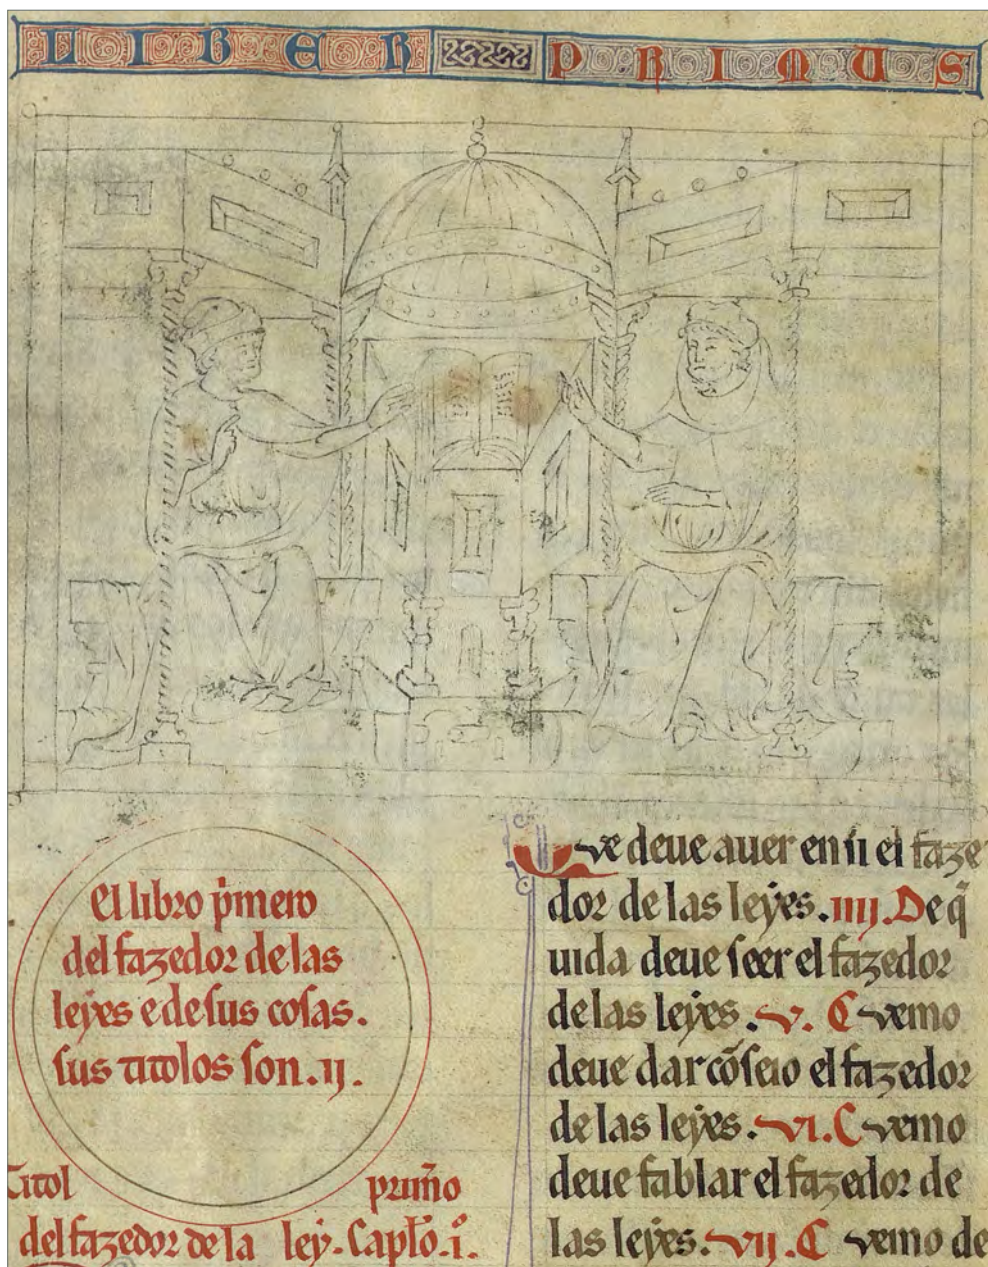 LIBER PRIMUS
El libro p̃mero
del fazedor de las
leyes e de sus cosas.
sus titolos son .ij.
Titol prim̃o
del fazedor de la ley. Caplõ .i.º
Que deue auer en si el faze
dor de las leyes .iiij. De q̃
uida deue seer el fazedor
de las leyes .v. Cuemo
deue dar cõseio el fazedor
de las leyes .vi. Cuemo
deue fablar el fazedor de
las leyes .vij. Cuemo de